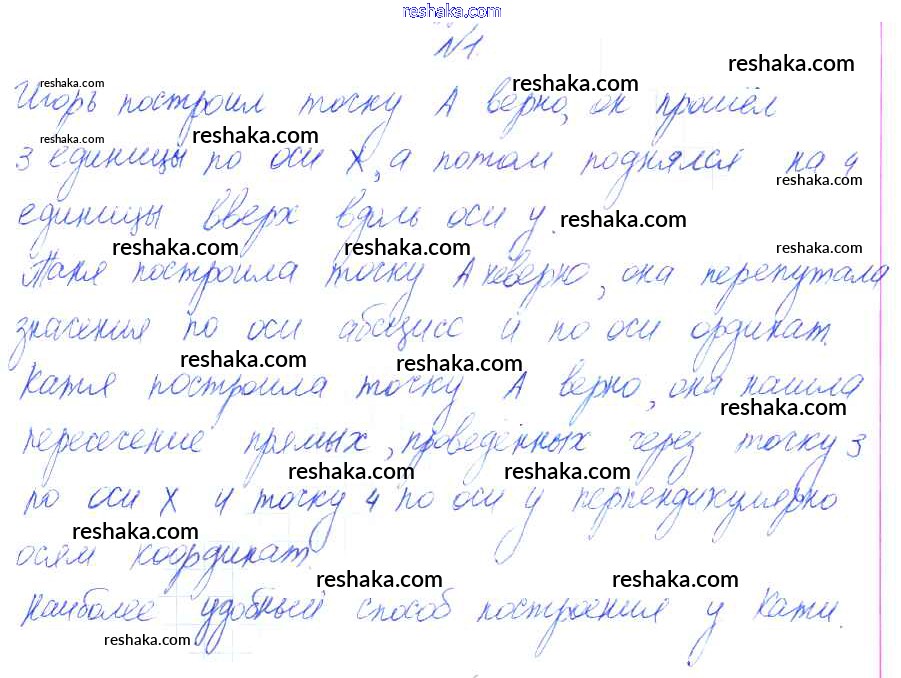 reshaka.com
№1.
reshaka.com
reshaka.com
reshaka.com
Игорь построил точку А верно, он прошёл
reshaka.com
reshaka.com
3 единицы по оси X, а потом поднялся на 4
reshaka.com
единицы вверх вдоль оси y.
reshaka.com
reshaka.com
reshaka.com
reshaka.com
Таня построила точку А неверно, она перепутала
значения по оси абсцисс и по оси ординат.
reshaka.com
reshaka.com
Катя построила точку А верно, она нашла
reshaka.com
пересечение прямых, проведённых через точку 3
reshaka.com
reshaka.com
по оси X и точку 4 по оси y перпендикулярно
reshaka.com
осям координат.
reshaka.com
reshaka.com
Наиболее удобный способ построения у Кати.
reshaka.com